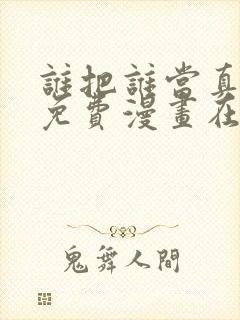 誰把誰當真
免費漫畫在
鬼舞人間